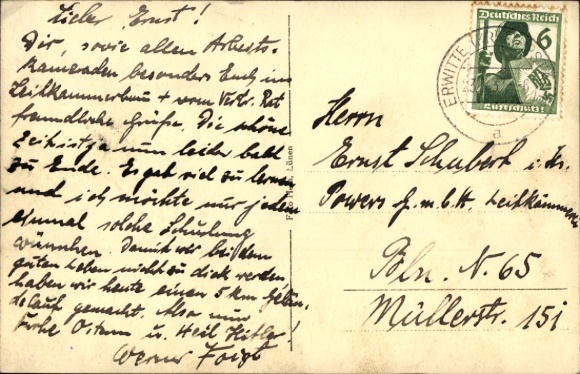 Lieber Ernst!
Dir, sowie allen Arbeits-
kameraden, besonders Euch im
Leitkammerbau + vom Vertr. Rat
freundliche Grüße. Die schöne
Zeit ist ja nun leider bald
zu Ende. Es gab viel zu lernen
und ich möchte nur jedem
einmal solche Schulung
wünschen. Damit wir bei dem
guten Leben nicht zu dick werden,
haben wir heute einen 5 km Gelän-
delauf gemacht. Also nun
Frohe Ostern u. Heil Hitler!
Werner Voigt
Lünen
Deutsches Reich
6
Luftschutz
ERWITTE
a
Herrn
Ernst Schubert i. Fa.
Powers G.m.b.H.
Bln. N. 65
Müllerstr. 151